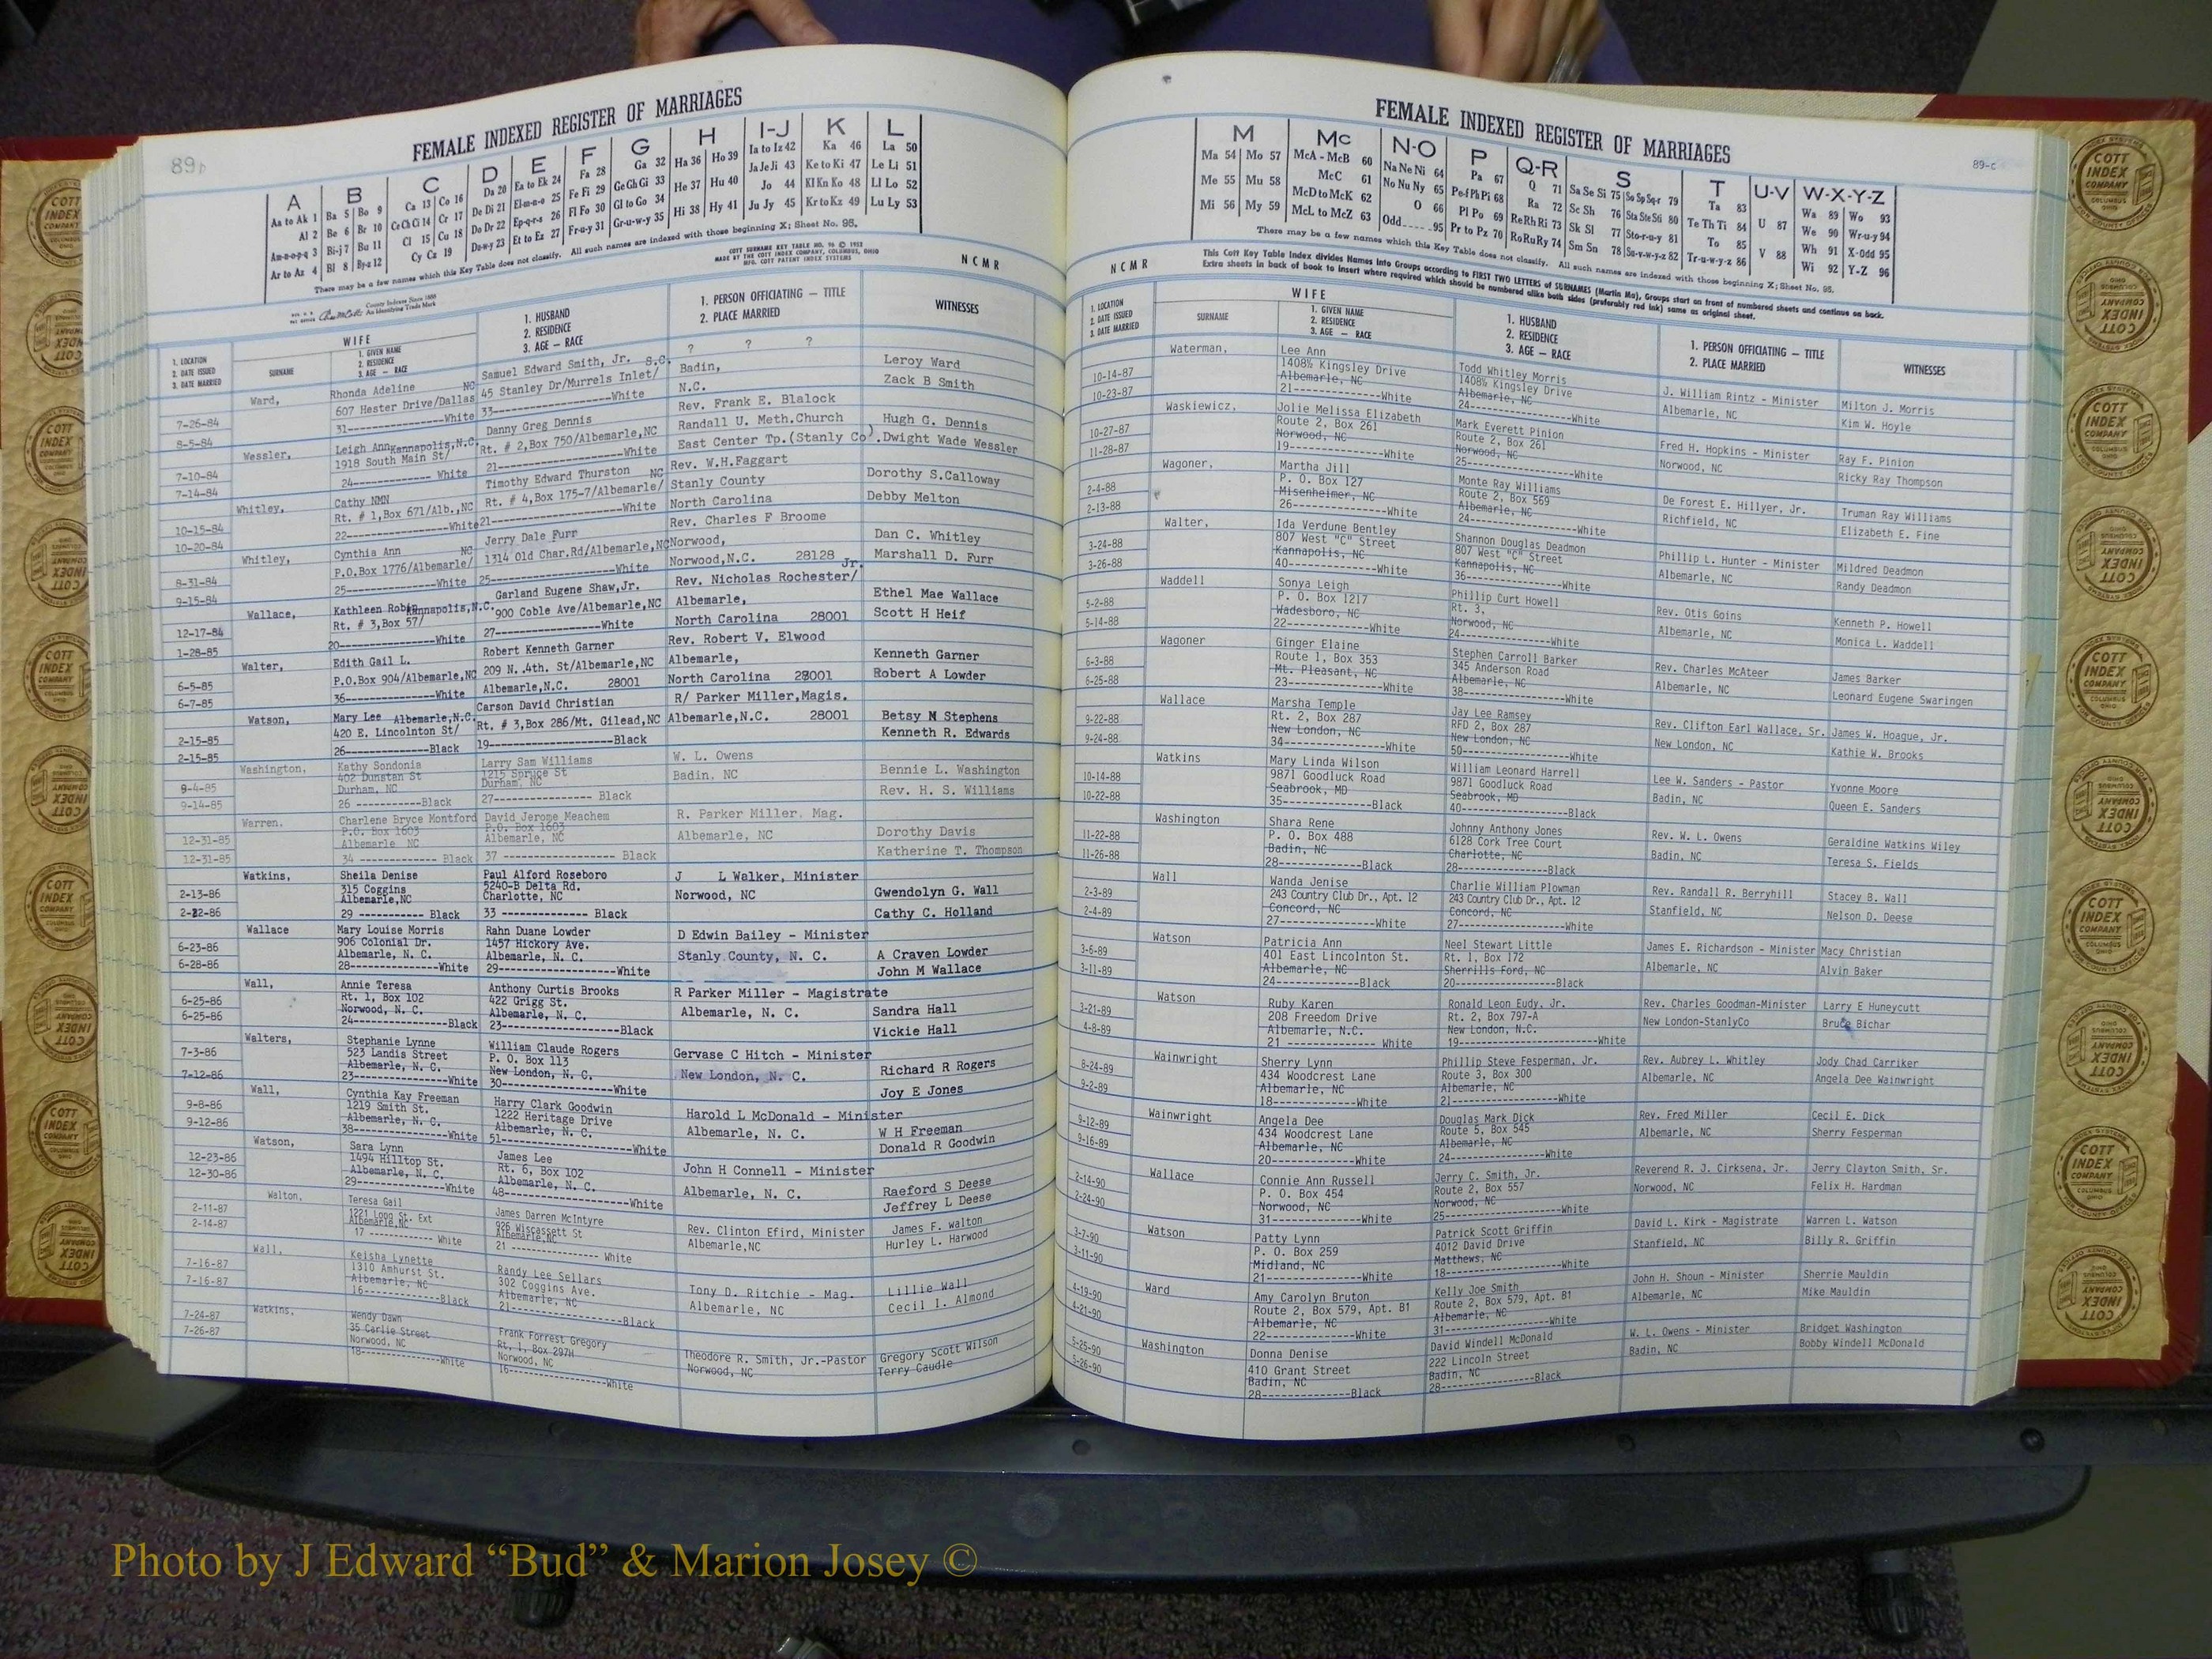 89b
FEMALE INDEXED REGISTER OF MARRIAGES
A B C D E F G H I-J K L
Aa to Ak 1 Ba 5 Bo 9 Ca 13 Co 16 Da 20 Ea to Ek 24 Fa 28 Ga 32 Ha 36 Ho 39 Ia to Iz 42 Ka 46 La 50
Al 2 Be 6 Br 10 Ce Ch Ci 14 Cr 17 De Di 21 El-m-n-o 25 Fe Fi 29 Ge Gh Gi 33 He 37 Hu 40 Ja Je Ji 43 Ke to Ki 47 Le Li 51
Am-n-o-p-q 3 Bi-j 7 Bu 11 Cl 15 Cu 18 Do Dr 22 Ep-q-r-s 26 Fl Fo 30 Gl to Go 34 Hi 38 Hy 41 Jo 44 Kl Kn Ko 48 Ll Lo 52
Ar to Az 4 Bl 8 By-z 12 Cy Cz 19 Du-w-y 23 Et to Ez 27 Fr-u-y 31 Gr-u-w-y 35 Ju Jy 45 Kr to Kz 49 Lu Ly 53
There may be a few names which this Key Table does not classify. All such names are indexed with those beginning X; Sheet No. 95.
COTT SURNAME KEY TABLE NO. 96 © 1952
MADE BY THE COTT INDEX COMPANY, COLUMBUS, OHIO
MFG. COTT PATENT INDEX SYSTEMS
NCMR
County Indexes Since 1888
An Identifying Trade Mark
1. LOCATION
2. DATE ISSUED
3. DATE MARRIED
WIFE
SURNAME
1. GIVEN NAME
2. RESIDENCE
3. AGE — RACE
1. HUSBAND
2. RESIDENCE
3. AGE — RACE
1. PERSON OFFICIATING — TITLE
2. PLACE MARRIED
WITNESSES
Ward, Rhonda Adeline NC Samuel Edward Smith, Jr. S.C. ? ? ? Leroy Ward
7-26-84 607 Hester Drive/Dallas 45 Stanley Dr/Murrels Inlet/ Badin, Zack B Smith
8-5-84 31------White 33------White N.C.
Wessler, Leigh Ann Kannapolis,N.C. Danny Greg Dennis Rev. Frank E. Blalock Hugh G. Dennis
7-10-84 1918 South Main St/ Rt. # 2,Box 750/Albemarle,NC Randall U. Meth.Church Dwight Wade Wessler
7-14-84 24------ White 21------White East Center Tp.(Stanly Co).
Whitley, Cathy NMN Timothy Edward Thurston NC Rev. W.H.Faggart Dorothy S.Calloway
10-15-84 Rt. # 1,Box 671/Alb.,NC Rt. # 4,Box 175-7/Albemarle/ Stanly County Debby Melton
10-20-84 22------White 21------White North Carolina
Whitley, Cynthia Ann NC Jerry Dale Furr Rev. Charles F Broome Dan C. Whitley
8-31-84 P.O.Box 1776/Albemarle/ 1314 Old Char.Rd/Albemarle,NC Norwood, Marshall D. Furr
9-15-84 25------White 25------White Norwood,N.C. 28128
Wallace, Kathleen Robin Kannapolis,N.C. Garland Eugene Shaw,Jr. Rev. Nicholas Rochester/ Jr. Ethel Mae Wallace
12-17-84 Rt. # 3,Box 57/ 900 Coble Ave/Albemarle,NC Albemarle, Scott H Heif
1-28-85 20------White 27------White North Carolina 28001
Walter, Edith Gail L. Robert Kenneth Garner Rev. Robert V. Elwood Kenneth Garner
6-5-85 P.O.Box 904/Albemarle,NC 209 N..4th. St/Albemarle,NC Albemarle, Robert A Lowder
6-7-85 36------White Albemarle,N.C. 28001 North Carolina 28001
Watson, Mary Lee Albemarle,N.C. Carson David Christian R/ Parker Miller,Magis. Betsy M Stephens
2-15-85 420 E. Lincolnton St/ Rt. # 3,Box 286/Mt. Gilead,NC Albemarle,N.C. 28001 Kenneth R. Edwards
2-15-85 26------Black 19------Black
Washington, Kathy Sondonia Larry Sam Williams W. L. Owens Bennie L. Washington
9-4-85 402 Dunstan St 1215 Spruce St Badin, NC Rev. H. S. Williams
9-14-85 Durham, NC Durham, NC
26 ------Black 27------ Black
Warren, Charlene Bryce Montford David Jerome Meachem R. Parker Miller, Mag. Dorothy Davis
12-31-85 P.O. Box 1603 P.O. Box 1603 Albemarle, NC Katherine T. Thompson
12-31-85 Albemarle NC Albemarle, NC
34 ------ Black 37 ------ Black
Watkins, Sheila Denise Paul Alford Roseboro J L Walker, Minister Gwendolyn G. Wall
2-13-86 315 Coggins 5240-B Delta Rd. Norwood, NC Cathy C. Holland
2-22-86 Albemarle,NC Charlotte, NC
29 ------ Black 33 ------ Black
Wallace Mary Louise Morris Rahn Duane Lowder D Edwin Bailey - Minister A Craven Lowder
6-23-86 906 Colonial Dr. 1457 Hickory Ave. Stanly County, N. C. John M Wallace
6-28-86 Albemarle, N. C. Albemarle, N. C.
28------White 29------White
Wall, Annie Teresa Anthony Curtis Brooks R Parker Miller - Magistrate Sandra Hall
6-25-86 Rt. 1, Box 102 422 Grigg St. Albemarle, N. C. Vickie Hall
6-25-86 Norwood, N. C. Albemarle, N. C.
24------Black 23------Black
Walters, Stephanie Lynne William Claude Rogers Gervase C Hitch - Minister Richard R Rogers
7-3-86 523 Landis Street P. O. Box 113 New London, N. C. Joy E Jones
7-12-86 Albemarle, N. C. New London, N. C.
23------White 30------White
Wall, Cynthia Kay Freeman Harry Clark Goodwin Harold L McDonald - Minister W H Freeman
9-8-86 1219 Smith St. 1222 Heritage Drive Albemarle, N. C. Donald R Goodwin
9-12-86 Albemarle, N. C. Albemarle, N. C.
38------White 51------White
Watson, Sara Lynn James Lee John H Connell - Minister Raeford S Deese
12-23-86 1494 Hilltop St. Rt. 6, Box 102 Albemarle, N. C. Jeffrey L Deese
12-30-86 Albemarle, N. C. Albemarle, N. C.
29------White 48------White
Walton, Teresa Gail James Darren McIntyre Rev. Clinton Efird, Minister James F. walton
2-11-87 1221 Long St. Ext 926 Wiscassett St Albemarle,NC Hurley L. Harwood
2-14-87 Albemarle,NC Albemarle,NC
17 ------ White 21 ------ White
Wall, Keisha Lynette Randy Lee Sellars Tony D. Ritchie - Mag. Lillie Wall
7-16-87 1310 Amhurst St. 302 Coggins Ave. Albemarle, NC Cecil I. Almond
7-16-87 Albemarle, NC Albemarle, NC
16------Black 21------Black
Watkins, Wendy Dawn Frank Forrest Gregory Theodore R. Smith, Jr.-Pastor Gregory Scott Wilson
7-24-87 35 Carlie Street Rt. 1, Box 297H Norwood, NC Terry Caudle
7-26-87 Norwood, NC Norwood, NC
18------White 16------White
89-c
FEMALE INDEXED REGISTER OF MARRIAGES
M Mc N-O P Q-R S T U-V W-X-Y-Z
Ma 54 Mo 57 McA - McB 60 Na Ne Ni 64 Pa 67 Q 71 Sa Se Si 75 So Sp Sq-r 79 Ta 83 U 87 Wa 89 Wo 93
Me 55 Mu 58 McC 61 No Nu Ny 65 Pe-f Ph Pi 68 Ra 72 Sc Sh 76 Sta Ste Sti 80 Te Th Ti 84 V 88 We 90 Wr-u-y 94
Mi 56 My 59 McD to McK 62 O 66 Pl Po 69 Re Rh Ri 73 Sk Sl 77 Sto-r-u-y 81 To 85 Wh 91 X-Odd 95
McL to McZ 63 Odd 95 Pr to Pz 70 Ro Ru Ry 74 Sm Sn 78 Su-v-w-y-z 82 Tr-u-w-y-z 86 Wi 92 Y-Z 96
There may be a few names which this Key Table does not classify. All such names are indexed with those beginning X; Sheet No. 95.
This Cott Key Table Index divides Names into Groups according to FIRST TWO LETTERS of SURNAMES (Martin Ma), Groups start on front of numbered sheets and continue on back.
Extra sheets in back of book to insert where required which should be numbered alike both sides (preferably red ink) same as original sheet.
NCMR
1. LOCATION
2. DATE ISSUED
3. DATE MARRIED
WIFE
SURNAME
1. GIVEN NAME
2. RESIDENCE
3. AGE — RACE
1. HUSBAND
2. RESIDENCE
3. AGE — RACE
1. PERSON OFFICIATING — TITLE
2. PLACE MARRIED
WITNESSES
Waterman, Lee Ann Todd Whitley Morris J. William Rintz - Minister Milton J. Morris
10-14-87 1408½ Kingsley Drive 1408½ Kingsley Drive Albemarle, NC Kim W. Hoyle
10-23-87 Albemarle, NC Albemarle, NC
21------White 24------White
Waskiewicz, Jolie Melissa Elizabeth Mark Everett Pinion Fred H. Hopkins - Minister Ray F. Pinion
10-27-87 Route 2, Box 261 Route 2, Box 261 Norwood, NC Ricky Ray Thompson
11-28-87 Norwood, NC Norwood, NC
19------White 25------White
Wagoner, Martha Jill Monte Ray Williams De Forest E. Hillyer, Jr. Truman Ray Williams
2-4-88 P. O. Box 127 Route 2, Box 569 Richfield, NC Elizabeth E. Fine
2-13-88 Misenheimer, NC Albemarle, NC
26------White 24------White
Walter, Ida Verdune Bentley Shannon Douglas Deadmon Phillip L. Hunter - Minister Mildred Deadmon
3-24-88 807 West "C" Street 807 West "C" Street Albemarle, NC Randy Deadmon
3-26-88 Kannapolis, NC Kannapolis, NC
40------White 36------White
Waddell Sonya Leigh Phillip Curt Howell Rev. Otis Goins Kenneth P. Howell
5-2-88 P. O. Box 1217 Rt. 3, Albemarle, NC Monica L. Waddell
5-14-88 Wadesboro, NC Norwood, NC
22------White 24------White
Wagoner Ginger Elaine Stephen Carroll Barker Rev. Charles McAteer James Barker
6-3-88 Route 1, Box 353 345 Anderson Road Albemarle, NC Leonard Eugene Swaringen
6-25-88 Mt. Pleasant, NC Albemarle, NC
23------White 38------White
Wallace Marsha Temple Jay Lee Ramsey Rev. Clifton Earl Wallace, Sr. James W. Hoague, Jr.
9-22-88 Rt. 2, Box 287 RFD 2, Box 287 New London, NC Kathie W. Brooks
9-24-88 New London, NC New London, NC
34------White 50------White
Watkins Mary Linda Wilson William Leonard Harrell Lee W. Sanders - Pastor Yvonne Moore
10-14-88 9871 Goodluck Road 9871 Goodluck Road Badin, NC Queen E. Sanders
10-22-88 Seabrook, MD Seabrook, MD
35------Black 40------Black
Washington Shara Rene Johnny Anthony Jones Rev. W. L. Owens Geraldine Watkins Wiley
11-22-88 P. O. Box 488 6128 Cork Tree Court Badin, NC Teresa S. Fields
11-26-88 Badin, NC Charlotte, NC
28------Black 28------Black
Wall Wanda Jenise Charlie William Plowman Rev. Randall R. Berryhill Stacey B. Wall
2-3-89 243 Country Club Dr., Apt. 12 243 Country Club Dr., Apt. 12 Stanfield, NC Nelson D. Deese
2-4-89 Concord, NC Concord, NC
27------White 27------White
Watson Patricia Ann Neel Stewart Little James E. Richardson - Minister Macy Christian
3-6-89 401 East Lincolnton St. Rt. 1, Box 172 Albemarle, NC Alvin Baker
3-11-89 Albemarle, NC Sherrills Ford, NC
24------Black 20------Black
Watson Ruby Karen Ronald Leon Eudy, Jr. Rev. Charles Goodman-Minister Larry E Huneycutt
3-21-89 208 Freedom Drive Rt. 2, Box 797-A New London-StanlyCo Bruce Bichar
4-8-89 Albemarle, N.C. New London, N.C.
21 ------ White 19------White
Wainwright Sherry Lynn Phillip Steve Fesperman, Jr. Rev. Aubrey L. Whitley Jody Chad Carriker
8-24-89 434 Woodcrest Lane Route 3, Box 300 Albemarle, NC Angela Dee Wainwright
9-2-89 Albemarle, NC Albemarle, NC
18------White 21------White
Wainwright Angela Dee Douglas Mark Dick Rev. Fred Miller Cecil E. Dick
9-12-89 434 Woodcrest Lane Route 5, Box 545 Albemarle, NC Sherry Fesperman
9-16-89 Albemarle, NC Albemarle, NC
20------White 24------White
Wallace Connie Ann Russell Jerry C. Smith, Jr. Reverend R. J. Cirksena, Jr. Jerry Clayton Smith, Sr.
2-14-90 P. O. Box 454 Route 2, Box 557 Norwood, NC Felix H. Hardman
2-24-90 Norwood, NC Norwood, NC
31------White 25------White
Watson Patty Lynn Patrick Scott Griffin David L. Kirk - Magistrate Warren L. Watson
3-7-90 P. O. Box 259 4012 David Drive Stanfield, NC Billy R. Griffin
3-11-90 Midland, NC Matthews, NC
21------White 18------White
Ward Amy Carolyn Bruton Kelly Joe Smith John H. Shoun - Minister Sherrie Mauldin
4-19-90 Route 2, Box 579, Apt. B1 Route 2, Box 579, Apt. B1 Albemarle, NC Mike Mauldin
4-21-90 Albemarle, NC Albemarle, NC
22------White 31------White
Washington Donna Denise David Windell McDonald W. L. Owens - Minister Bridget Washington
5-25-90 410 Grant Street 222 Lincoln Street Badin, NC Bobby Windell McDonald
5-26-90 Badin, NC Badin, NC
28------Black 28------Black
COTT INDEX COMPANY COLUMBUS OHIO
INDEX SYSTEMS FOR COUNTY OFFICES
Photo by J Edward “Bud” & Marion Josey ©